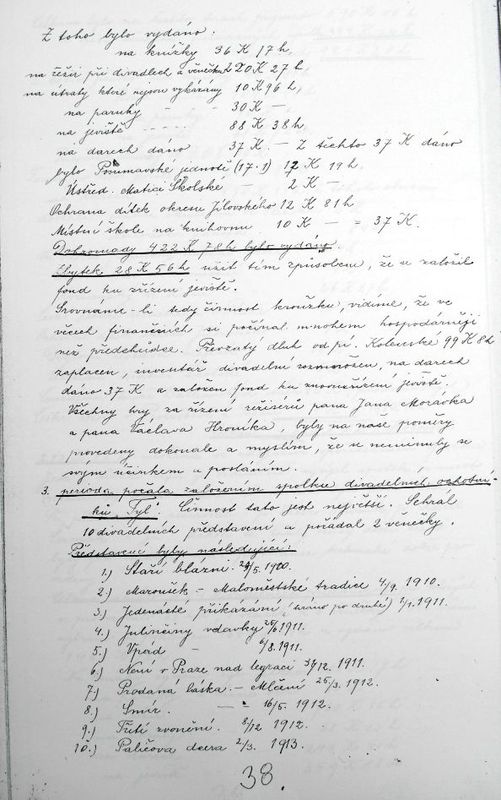 Z toho bylo vydáno:
na knížky 36 K 17 h,
na režii při divadlech a věnečku 120 K 27 h,
na útraty které nejsou vykázány 10 K 96 h,
na paruky - - 30 K —,
na jeviště - - - - - 88 K 38 h,
na darech dáno 37 K. — Z těchto 37 K dáno
bylo Pošumavské jednotě (17·1) 12 K 19 h,
Ústřed. Matici Školské — 2 K —
Ochrana dítek okresu Jílovského 12 K 81 h
Místní škole na knihovnu 10 K — = 37 K.
Dohromady 422 K 78 h bylo vydáno.
Zbytek 28 K 56 h užit tím způsobem, že se založil
fond ku zřízení jeviště.
Srovnáme-li tedy činnost kroužku, vidíme, že ve
věcech finančních si počínal mnohem hospodárněji
než předchůdce. Převzatý dluh od pí. Kolenské 99 K 8 h
zaplacen, inventář divadelní rozmnožen, na darech
dáno 37 K a založen fond ku znovuzřízení jeviště.
Všechny hry, za řízení režisérů pana Jana Morávka
a pana Václava Hroníka, byly na naše poměry
provedeny dokonale a myslím, že se neminuly se
svým účinkem a posláním.
3. perioda počala založením spolku divadelních ochotní-
ků "Tyl". Činnost tato jest největší. Sehrál
10 divadelních představení a pořádal 2 věnečky.
Představení byly následující:
1.) Staří blázni. 29/5. 1910.
2.) Maroušek - Maloměstské tradice 4/9. 1910.
3.) Jedenácté přikázání (hráno po druhé) 1/1. 1911.
4.) Julinčiny vdavky 25/6 1911.
5.) Vpád — 6/8. 1911.
6.) Není v Praze nad legraci 3/12. 1911.
7.) Prodaná láska. — Mlčení 25/3. 1912.
8.) Smír. — = 16/5. 1912.
9.) Třetí zvonění. 8/12 1912.
10.) Paličova dcera 2/3. 1913.
38.